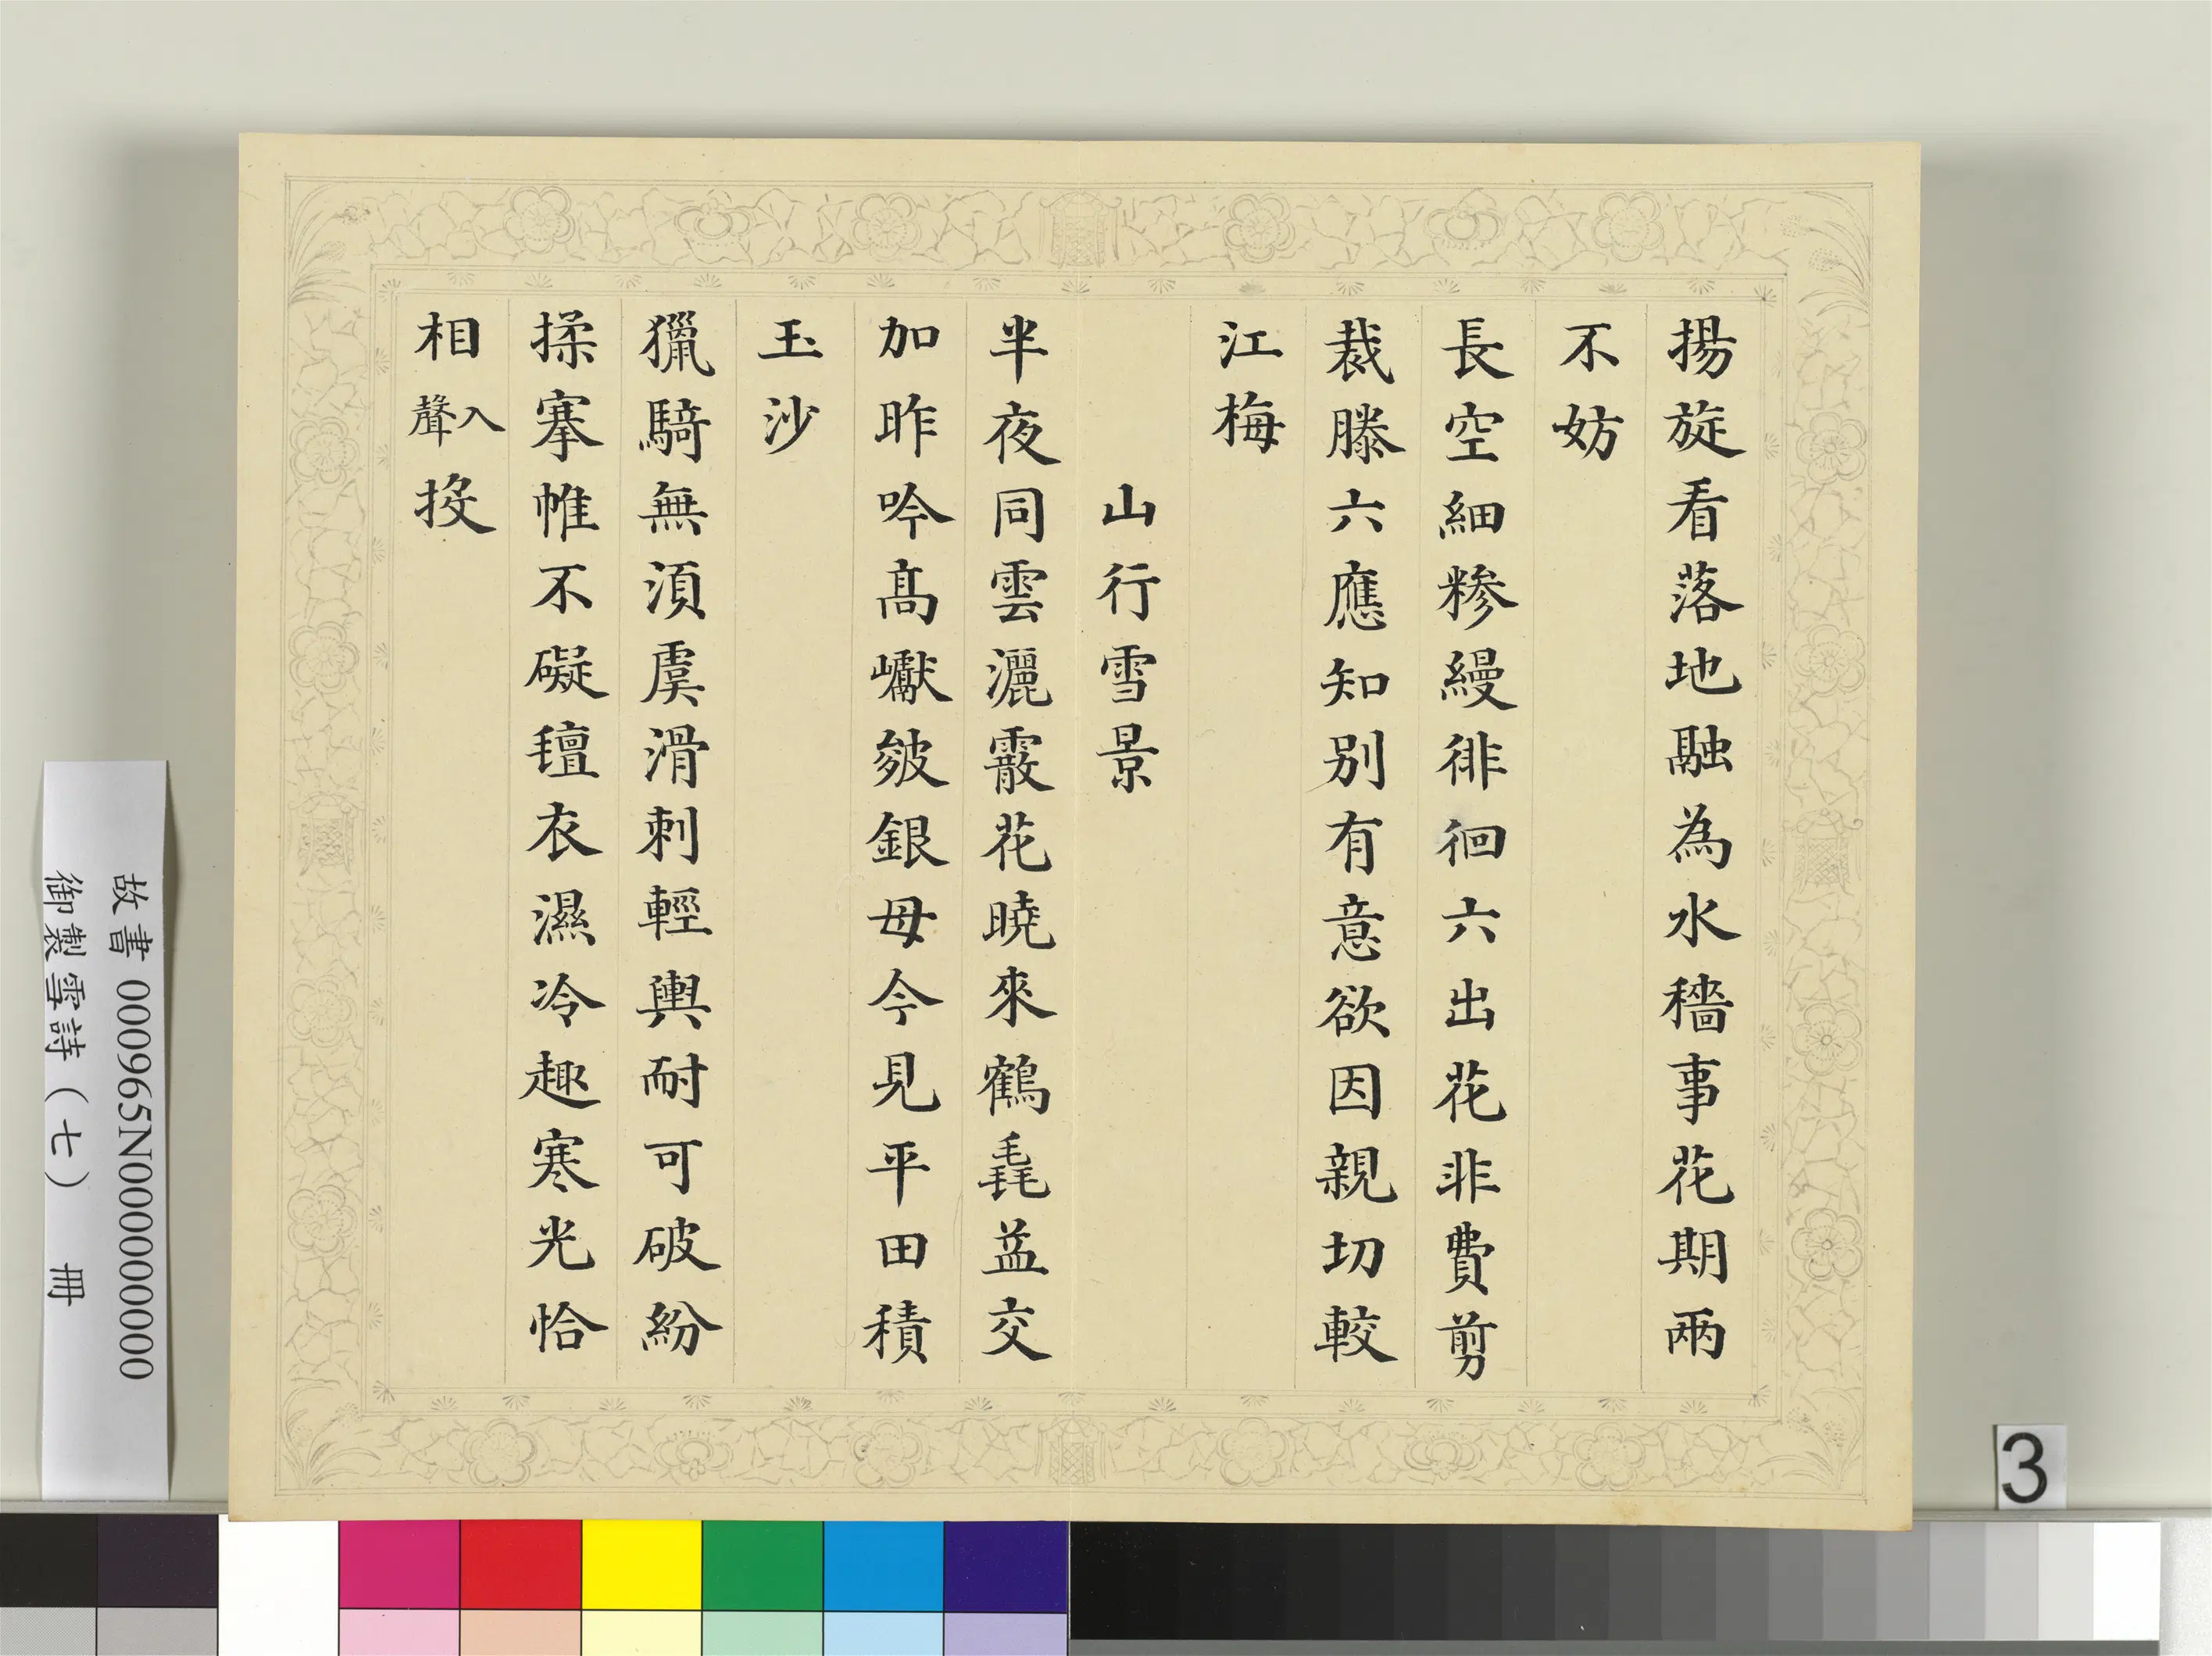 揚旋看落地融為水穡事花期兩
不妨
長空細糝縵徘徊六出花非費剪
裁滕六應知別有意欲因親切較
江梅
山行雪景
半夜同雲灑霰花曉來鶴毳益交
加昨吟髙巘皴銀母今見平田積
玉沙
獵騎無須虞滑刺輕輿耐可破紛
揉搴帷不礙氊衣濕冷趣寒光恰
相入聲投
故書 000965N000000000
御製雪詩（七） 冊
3